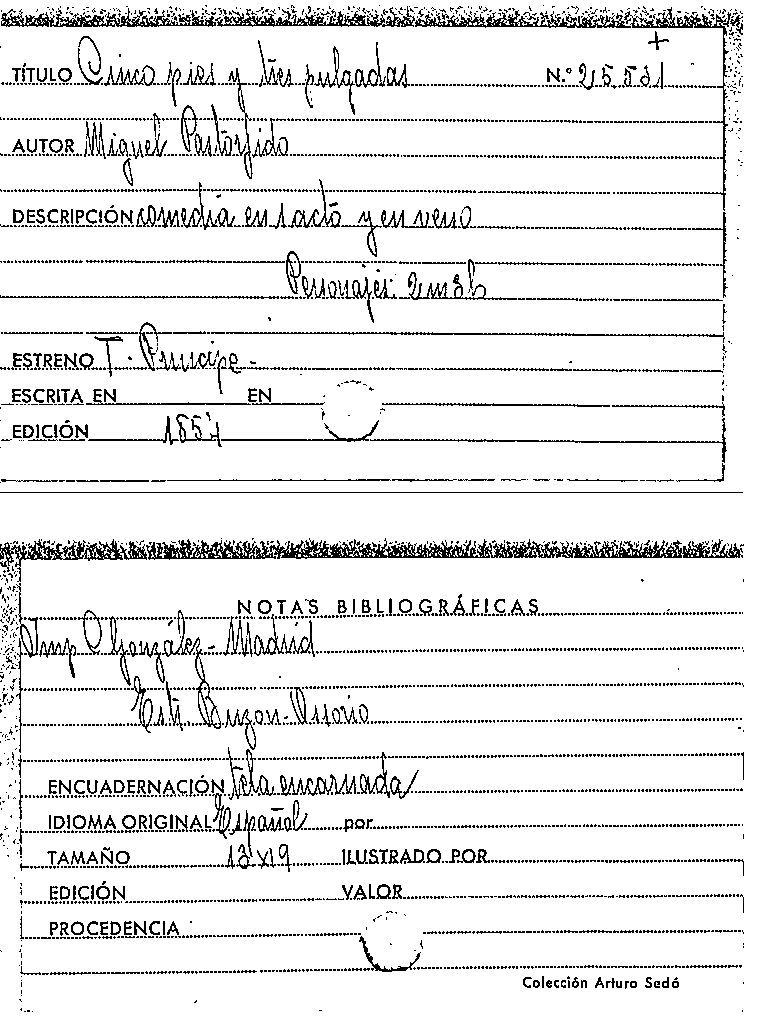 +
TÍTULO Cinco pies y tres pulgadas N.º 25.531
AUTOR Miguel Pastorfido
DESCRIPCIÓN comedia en 1 acto y en verso
Personajes: 2m3h
ESTRENO T. Príncipe-
ESCRITA EN EN
EDICIÓN 1854
NOTAS BIBLIOGRÁFICAS
Imp González- Madrid
Buzon-Osorio
ENCUADERNACIÓN tela encarnada
IDIOMA ORIGINAL Español por
TAMAÑO 13x19 ILUSTRADO POR
EDICIÓN VALOR
PROCEDENCIA
Colección Arturo Sedó